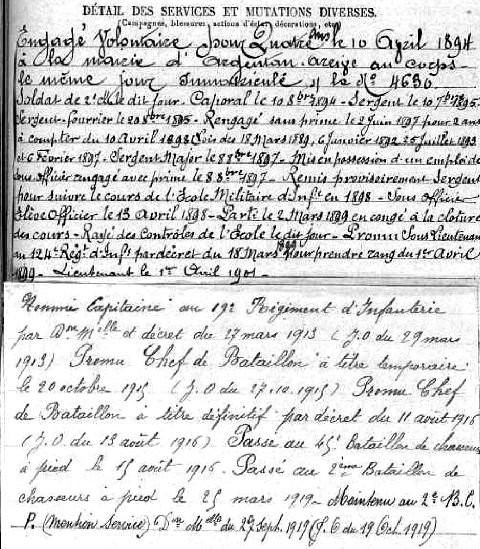 DÉTAIL DES SERVICES ET MUTATIONS DIVERSES.
(Campagnes, blessures, actions d'éclat, décorations, etc.)
Engagé Volontaire pour Quatre ans le 10 Avril 1894
à la mairie d'Argentan. Arrivé au corps
le même jour Immatriculé s/ le No 4630
Soldat de 2e cl. le dit jour. Caporal le 10 8bre 1894 - Sergent le 10 7bre 1895.
Sergent-fourrier le 20 8bre 1895 - Rengagé sans prime le 2 Juin 1897 pour 2 ans
à compter du 10 Avril 1898 (Lois des 18 Mars 1889, 6 Janvier 1892 25 Juillet 1893
et 6 Février 1897 - Sergent Major le 8 8bre 1897 - Mis en possession d'un emploi de
sous officier rengagé avec prime le 8 8bre 1897 - Remis provisoirement Sergent
pour suivre le cours de l'Ecole Militaire d'Infie en 1898 - Sous Officier
Elève Officier le 13 Avril 1898 - Parti le 2 Mars 1899 en congé à la clôture
des cours - Rayé des Contrôles de l'Ecole le dit jour - Promu Sous Lieutenant
au 124e Régt d'Infie par décret du 18 Mars 1899 pour prendre rang du 1er Avril
1899 - Lieutenant le 1er Avril 1901 -
Nommé Capitaine au 19e Régiment d'Infanterie
par Don Mlle et décret du 27 mars 1913 (J.O du 29 mars
1913) Promu Chef de Bataillon à titre temporaire
le 20 octobre 1915 (J.O du 27.10.1915) Promu Chef
de Bataillon à titre définitif par décret du 11 août 1916
(J.O. du 13 août 1916) Passé au 45e Bataillon de chasseurs
à pied le 15 août 1916. Passé au 2ème Bataillon de
chasseurs à pied le 25 mars 1919 - Maintenu au 2e B.C.
P. (Mention Service) Don Mlle du 27 Sept. 1919 (J.O du 19 Oct. 1919)